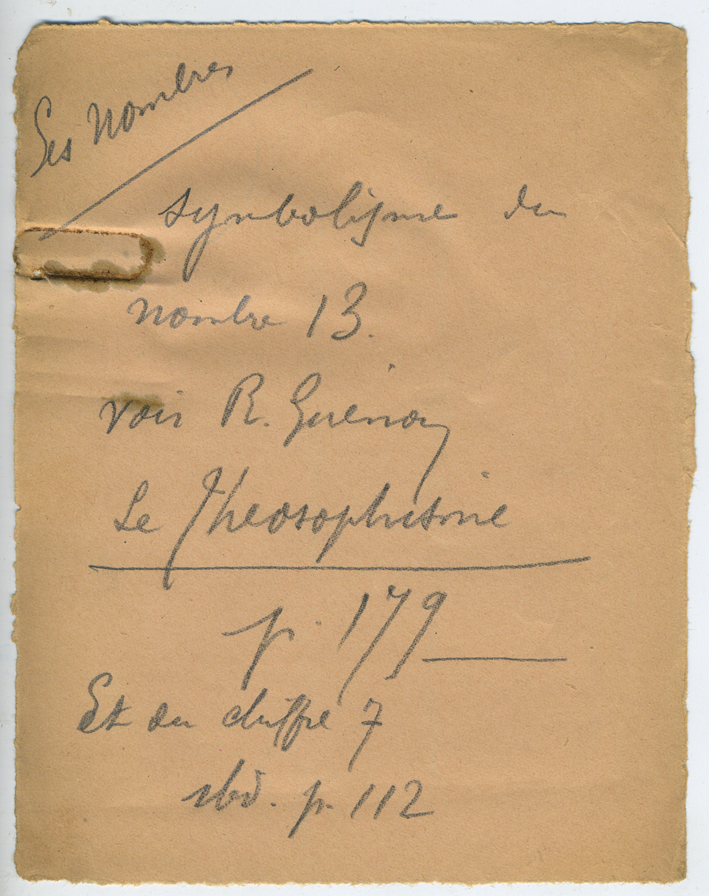 Les Nombres
Symbolisme du
nombre 13.
voir R. Guénon
Le Theosophisme
p. 179
Et du chiffre 7
ibid. p. 112